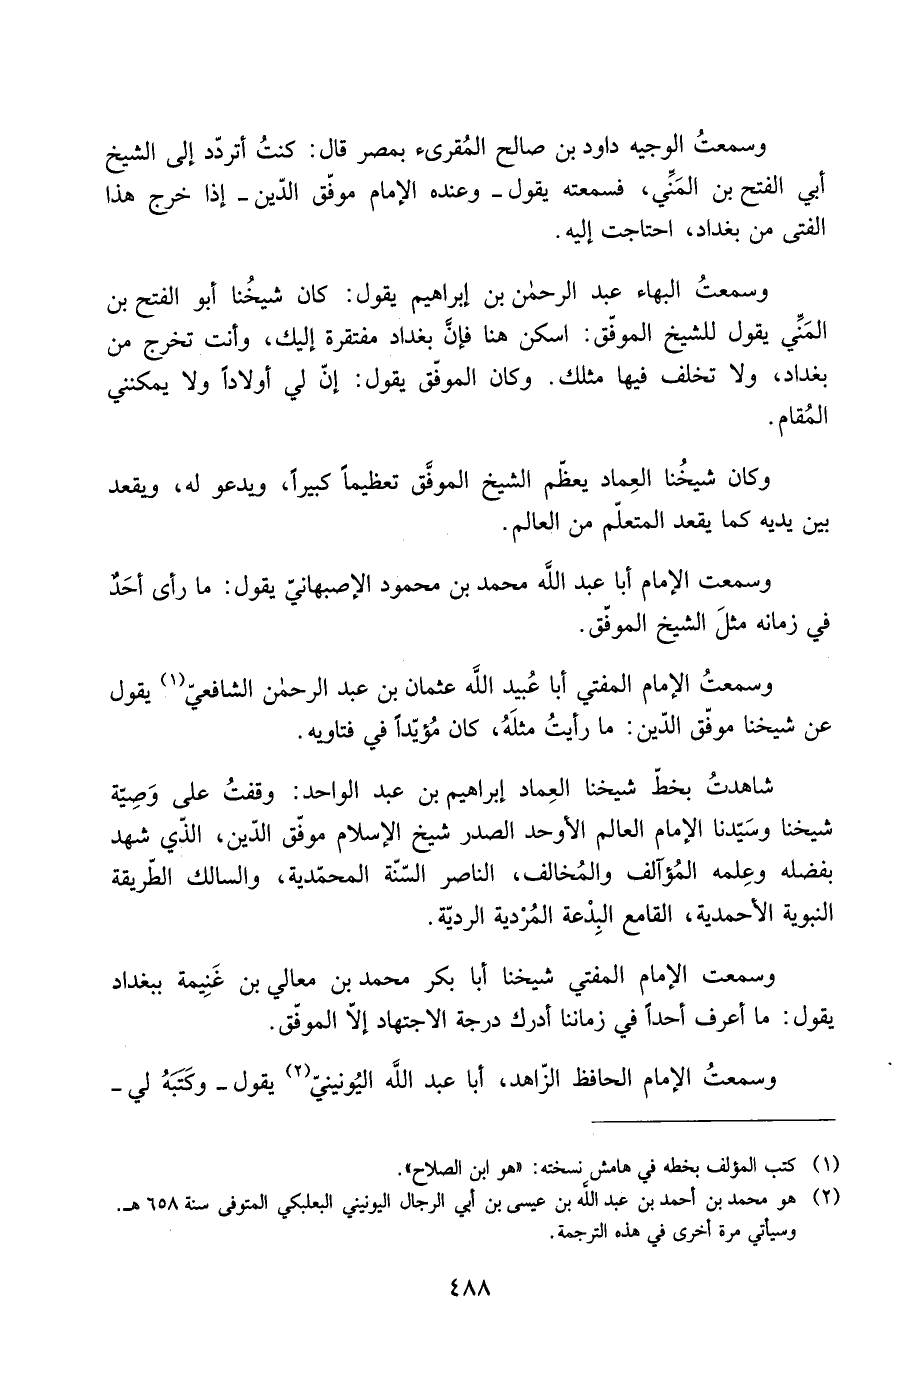 وسمعتُ الوجيه داود بن صالح المُقرىء بمصر قال: كنتُ أتردّد إلى الشيخ
أبي الفتح بن المَنِّي، فسمعته يقول ـ وعنده الإمام موفّق الدّين ـ إذا خرج هذا
الفتى من بغداد، احتاجت إليه.
وسمعتُ البهاء عبد الرحمٰن بن إبراهيم يقول: كان شيخُنا أبو الفتح بن
المَنِّي يقول للشيخ الموفّق: اسكن هنا فإنَّ بغداد مفتقرة إليك، وأنت تخرج من
بغداد، ولا تخلف فيها مثلك. وكان الموفّق يقول: إنّ لي أولاداً ولا يمكنني
المُقام.
وكان شيخُنا العِماد يعظّم الشيخ الموفَّق تعظيماً كبيراً، ويدعو له، ويقعد
بين يديه كما يقعد المتعلّم من العالم.
وسمعت الإمام أبا عبد اللَّه محمد بن محمود الإصبهانيّ يقول: ما رأى أحَدٌ
في زمانه مثلَ الشيخ الموفّق.
وسمعتُ الإمام المفتي أبا عُبيد اللَّه عثمان بن عبد الرحمٰن الشافعيّ(١) يقول
عن شيخنا موفّق الدّين: ما رأيتُ مثلَهُ، كان مُؤيّداً في فتاويه.
شاهدتُ بخطّ شيخنا العِماد إبراهيم بن عبد الواحد: وقفتُ على وَصِيّة
شيخنا وسَيّدنا الإمام العالم الأوحد الصدر شيخ الإسلام موفّق الدّين، الذّي شهد
بفضله وعِلمه المُؤآلف والمُخالف، الناصر السّنّة المحمّدية، والسالك الطّريقة
النبوية الأحمدية، القامع البِدْعة المُرْدية الرديّة.
وسمعت الإمام المفتي شيخنا أبا بكر محمد بن معالي بن غَنِيمة ببغداد
يقول: ما أعرف أحداً في زماننا أدرك درجة الاجتهاد إلاّ الموفّق.
وسمعتُ الإمام الحافظ الزّاهد، أبا عبد اللَّه اليُونينيّ(٢) يقول ـ وكَتَبَهُ لي ـ
(١) كتب المؤلف بخطه في هامش نسخته: «هو ابن الصلاح».
(٢) هو محمد بن أحمد بن عبد اللَّه بن عيسى بن أبي الرجال اليونيني البعلبكي المتوفى سنة ٦٥٨ هـ.
وسيأتي مرة أخرى في هذه الترجمة.
٤٨٨